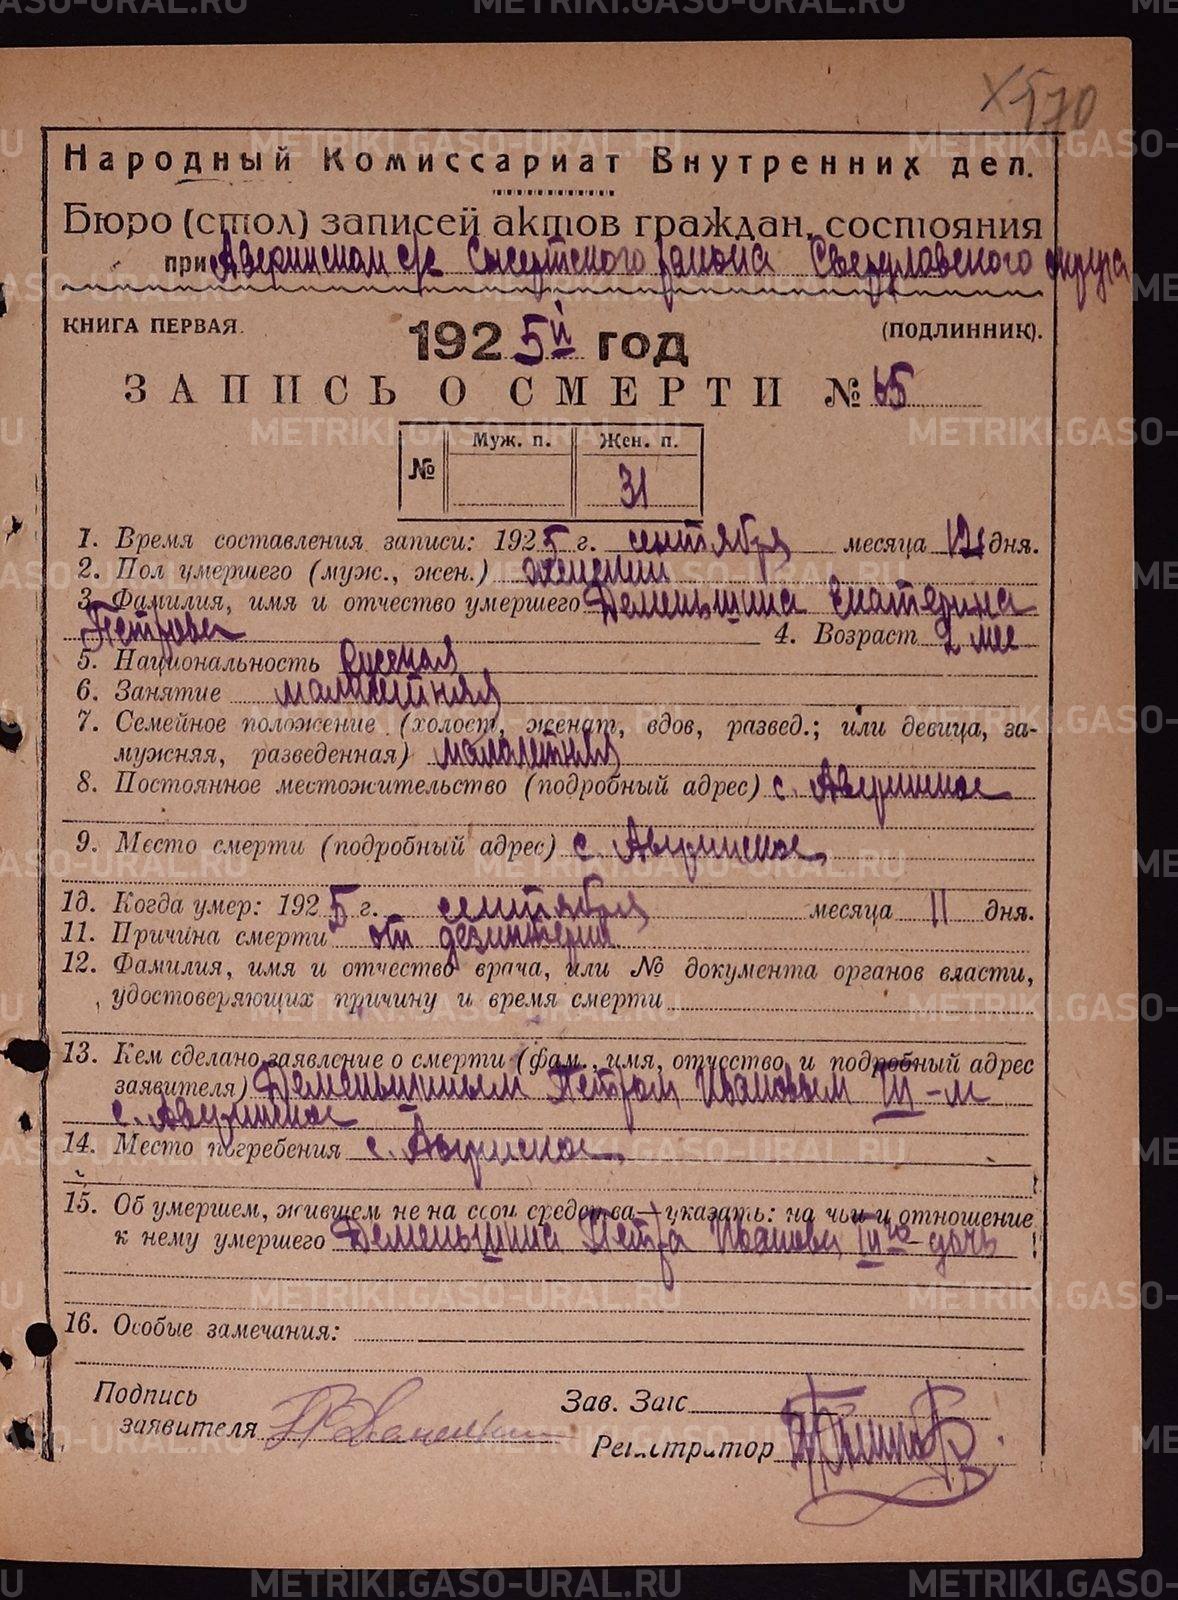 METRIKI.GASO-URAL.RU
570
Народный Комиссариат Внутренних дел.
Бюро (стол) записей актов граждан. состояния
при Аверинском с/с Сысертского района Свердловского округа
КНИГА ПЕРВАЯ. 1925й год (ПОДЛИННИК).
ЗАПИСЬ О СМЕРТИ № 65
Муж. п. Жен. п.
№ 31
1. Время составления записи: 1925 г. сентября месяца 12 дня.
2. Пол умершего (муж., жен.) женский
3. Фамилия, имя и отчество умершего Деменьшина Екатерина
Петрова 4. Возраст 2 мес
5. Национальность Русская
6. Занятие малолетняя
7. Семейное положение (холост, женат, вдов, развед.; или девица, за-
мужняя, разведенная) малолетняя
8. Постоянное местожительство (подробный адрес) с. Аверинское
9. Место смерти (подробный адрес) с. Аверинское
10. Когда умер: 1925 г. сентября месяца 11 дня.
11. Причина смерти от дезинтерии
12. Фамилия, имя и отчество врача, или № документа органов власти,
удостоверяющих причину и время смерти
13. Кем сделано заявление о смерти (фам., имя, отчество и подробный адрес
заявителя) Деменьшиным Петром Ивановым III-м
с. Аверинское
14. Место погребения с. Аверинское
15. Об умершем, жившем не на свои средства—указать: на чьи и отношение
к нему умершего Деменьшина Петра Иванова III го дочь
16. Особые замечания:
Подпись Зав. Загс
заявителя
Регистратор